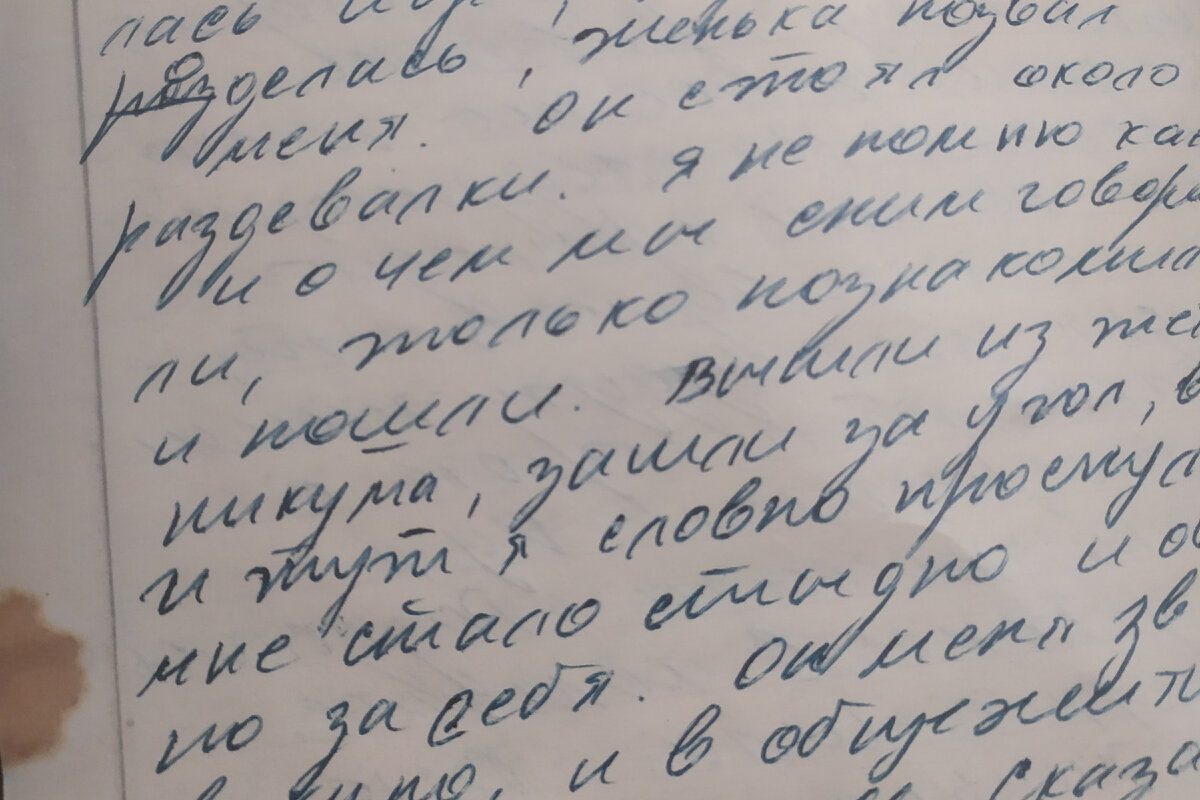 лась
розделась, женька позвал
меня. он стоял около
раздевалки. я не помню как
и о чем мы сним говори
ли, только познакомил
и пошли. Вышли из
никума, зашли за угол, в
и тут я словно проснул
мне стало стыдно и
но за себя. Он меня зв
и в общежит
сказа